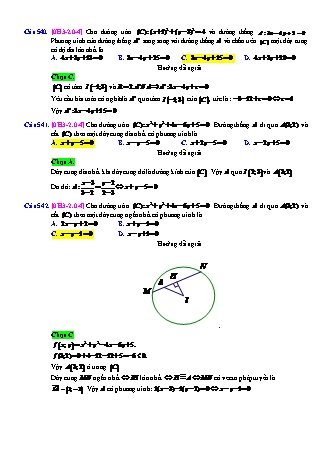 Câu 540. [0H3-2.0-4] Cho đường tròn (C): (x+3)²+(y-3)²=4 và đường thẳng d: 3x-4y+2=0
Phương trình của đường thẳng d' song song với đường thẳng và chắn trên (C) một dây cung
có độ dài lớn nhất là
A. 4x+3y+13=0 B. 3x-4y+25=0 C. 3x-4y+15=0 D. 4x+3y+20=0
Hướng dẫn giải
Chọn C.
(C) có tâm
Yêu cầu bài toán có nghĩa là d' qua tâm của (C), tức là:
Vậy
Câu 541. [0H3-2.0-4] Cho đường tròn (C): x²+y²-4x-6y+5=0. Đường thẳng d đi qua A(3;2) và
cắt (C) theo một dây cung dài nhất có phương trình là
A. x+y-5=0 B. x-y-5=0 C. x+2y-5=0 D. x-2y+5=0
Hướng dẫn giải
Chọn A.
Dây cung dài nhất khi dây cung đó là đường kính của (C). Vậy d qua I(2;3) và A(3;2)
Do đó:
Câu 542. [0H3-2.0-4] Cho đường tròn (C): x²+y²-4x-6y+5=0. Đường thẳng d đi qua A(3;2) và
cắt (C) theo một dây cung ngắn nhất có phương trình là
A. 2x-y+2=0 B. x+y-1=0
C. x-y-1=0 D. x-y+1=0
Hướng dẫn giải
N
H
A
M
I
Chọn C.
f(x;y)=x²+y²-4x-6y+5.
f(3;2)=9+4-12-12+5=-6<0.
Vậy A(3;2) ở trong (C)
Dây cung MN ngắn nhất ⇔ IH lớn nhất ⇔ H ≡ A ⇔ MN có vectơ pháp tuyến là
Vậy d có phương trình: